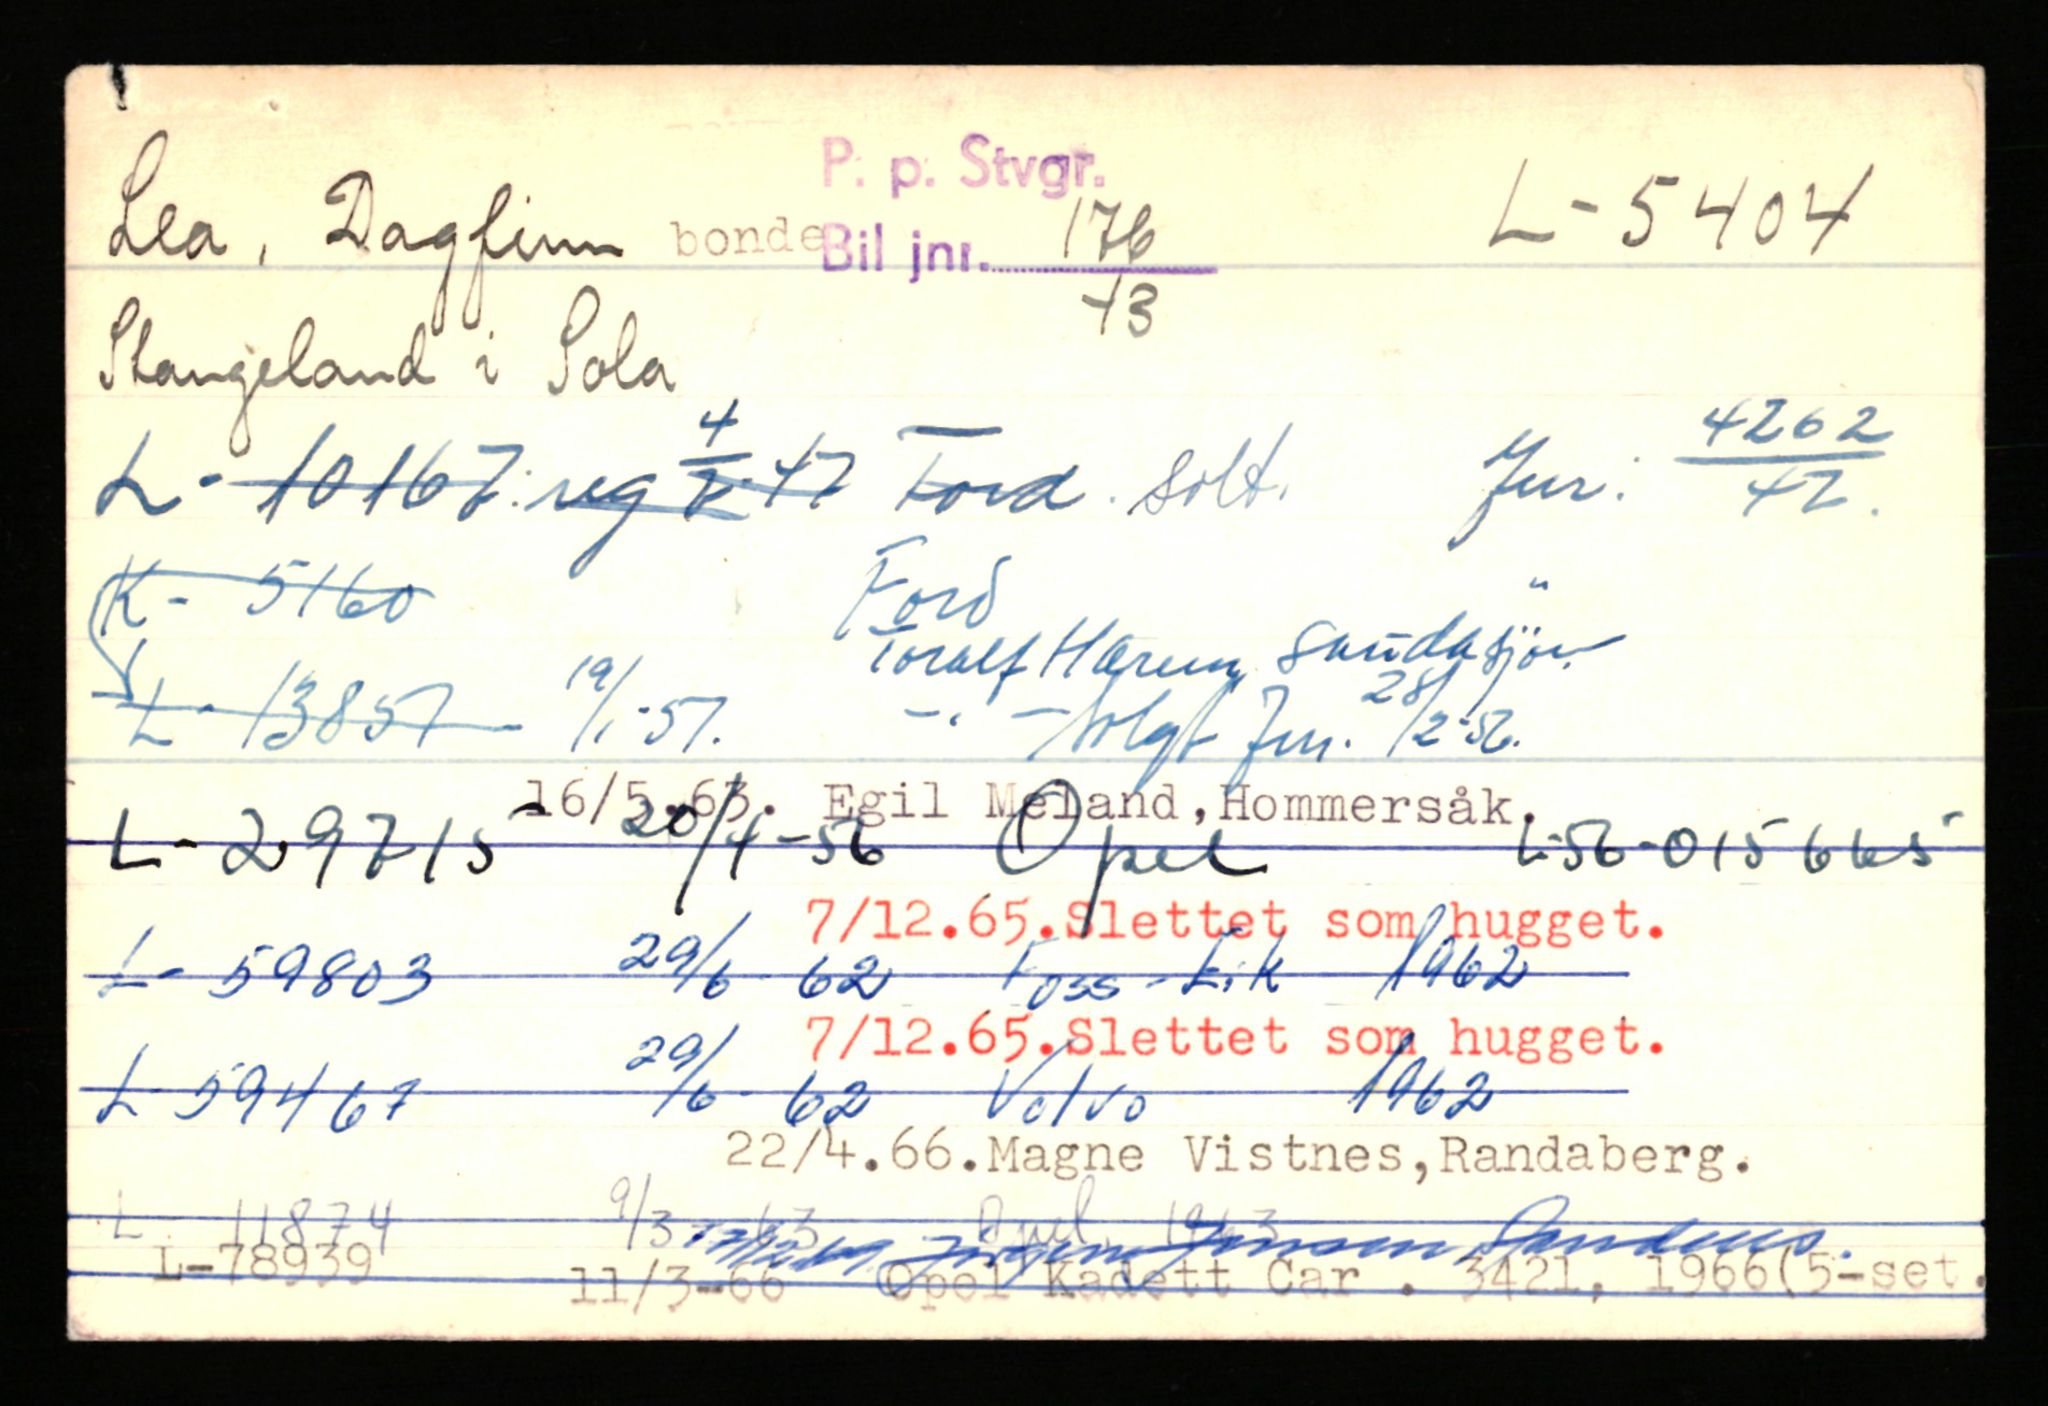 P. p. Stvgr.
Lea, Dagfinn bonde Bil jnr. 176 L-5404
43
Stangeland i Sola
4262
L-10167: reg 4/ 47 Ford. solt. Jnr: 47.
K- 5160 Ford
Toralf Hærem
L-13857 19/1-57. -"- solgt Jnr. 28/2-56.
16/5.63. Egil Meland, Hommersåk.
L-29715 20/4-56 Opel L-56-015665
7/12.65.Slettet som hugget.
L- 59803 29/6- 62 Foss-Eik 1962
7/12.65.Slettet som hugget.
L 59467 29/6- 62 Volvo 1962
22/4.66.Magne Vistnes,Randaberg.
L 11874 9/3 63 Opel 1963
L-78939 11/3-66 Opel Kadett Car . 3421, 1966(5-set.